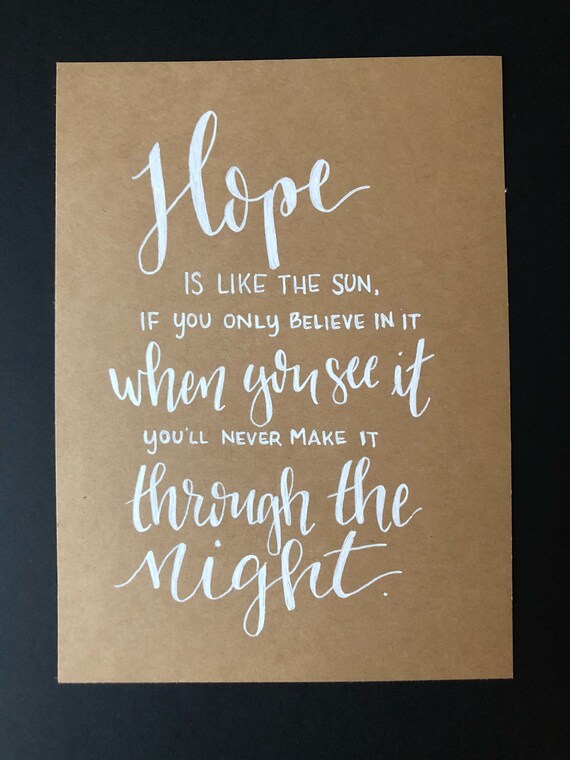 Hope
IS LIKE THE SUN,
IF YOU ONLY BELIEVE IN IT
when you see it
YOU'LL NEVER MAKE IT
through the
night.